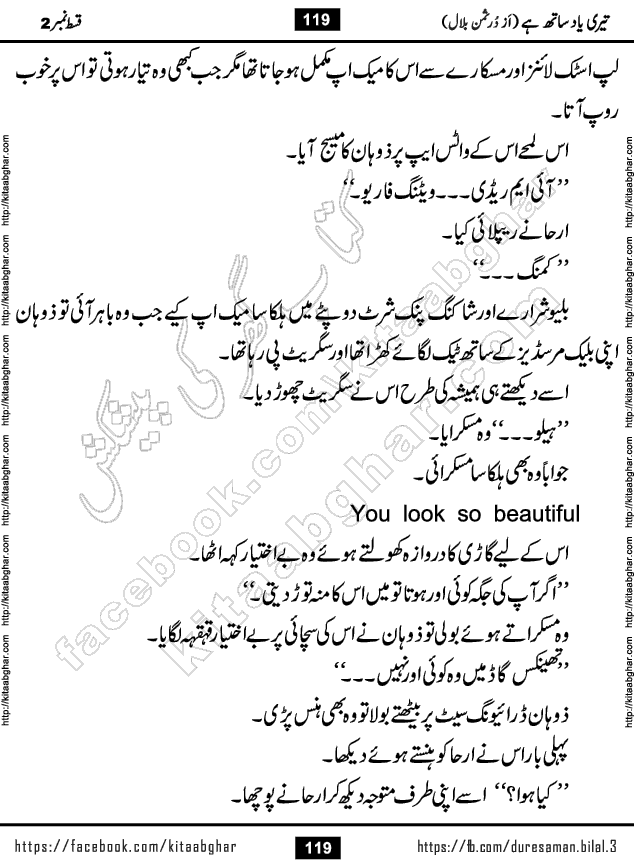 تیری یاد ساتھ ہے (از دُرِثمن بلال) 119 قسط نمبر 2
لپ اسٹک لائنز اور مسکارے سے اس کا میک اپ مکمل ہو جاتا تھا مگر جب کبھی وہ تیار ہوتی تو اس پر خوب
روپ آتا۔
اس لمحے اس کے واٹس ایپ پر ذوہان کا میسج آیا۔
’’آئی ایم ریڈی۔۔۔ ویٹنگ فار یو۔‘‘
ارحا نے ریپلائی کیا۔
’’کمنگ ۔۔۔‘‘
بلیو شرارے اور شاکنگ پنک شرٹ دوپٹے میں ہلکا سا میک اپ کیے جب وہ باہر آئی تو ذوہان
اپنی بلیک مرسڈیز کے ساتھ ٹیک لگائے کھڑا تھا اور سگریٹ پی رہا تھا۔
اسے دیکھتے ہی ہمیشہ کی طرح اس نے سگریٹ چھوڑ دیا۔
’’ہیلو ۔۔۔‘‘ وہ مسکرایا۔
جواباً وہ بھی ہلکا سا مسکرائی۔
You look so beautiful
اس کے لیے گاڑی کا دروازہ کھولتے ہوئے وہ بے اختیار کہہ اٹھا۔
’’اگر آپ کی جگہ کوئی اور ہوتا تو میں اس کا منہ توڑ دیتی۔‘‘
وہ مسکراتے ہوئے بولی تو ذوہان نے اس کی سچائی پر بے اختیار قہقہہ لگایا۔
’’تھینکس گاڈ میں وہ کوئی اور نہیں ۔۔۔‘‘
ذوہان ڈرائیونگ سیٹ پر بیٹھتے بولا تو وہ بھی ہنس پڑی۔
پہلی بار اس نے ارحا کو ہنستے ہوئے دیکھا۔
’’کیا ہوا؟‘‘ اسے اپنی طرف متوجہ دیکھ کر ارحا نے پوچھا۔
http://kitaabghar.com http://kitaabghar.com http://kitaabghar.com http://kitaabghar.com http://kitaabghar.com http://kitaabghar.com
http://kitaabghar.com http://kitaabghar.com http://kitaabghar.com http://kitaabghar.com http://kitaabghar.com http://kitaabghar.com
کتاب گھر کی پیشکش
facebook.com/kitaabghar
kitaabghar.com
https://facebook.com/kitaabghar 119 https://fb.com/duresaman.bilal.3